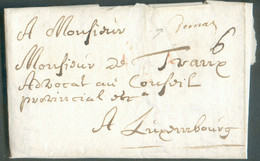 A Monsieur
Monsieur de Traux
6
Advocat au Conseil
provincial etc
A Luxembourg